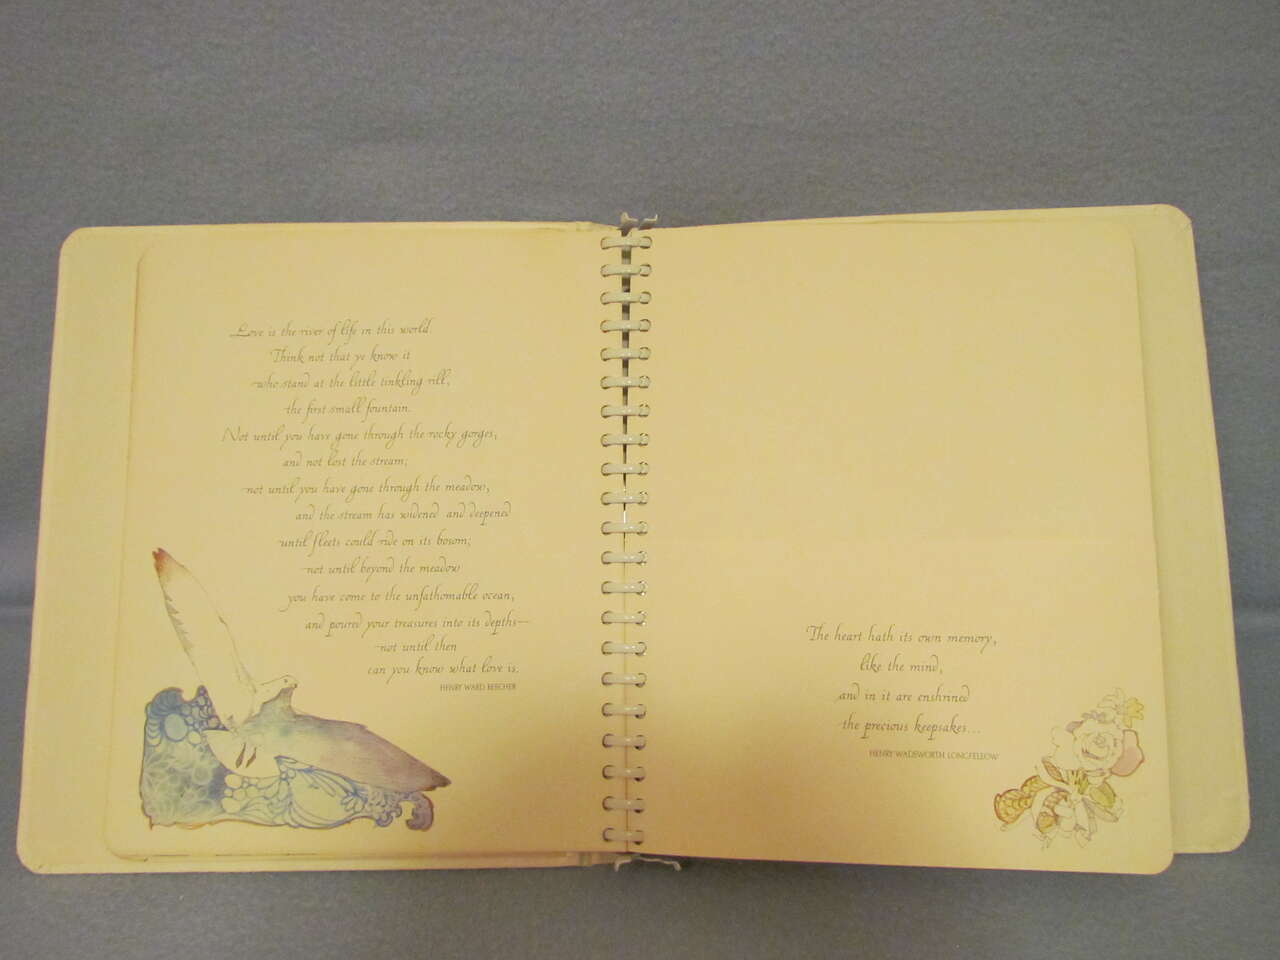 Love is the river of life in this world.
Think not that ye know it
who stand at the little tinkling rill,
the first small fountain.
Not until you have gone through the rocky gorges,
and not lost the stream;
not until you have gone through the meadow,
and the stream has widened and deepened
until fleets could ride on its bosom;
not until beyond the meadow
you have come to the unfathomable ocean,
and poured your treasures into its depths—
not until then
can you know what love is.
HENRY WARD BEECHER
The heart hath its own memory,
like the mind,
and in it are enshrined
the precious keepsakes...
HENRY WADSWORTH LONGFELLOW